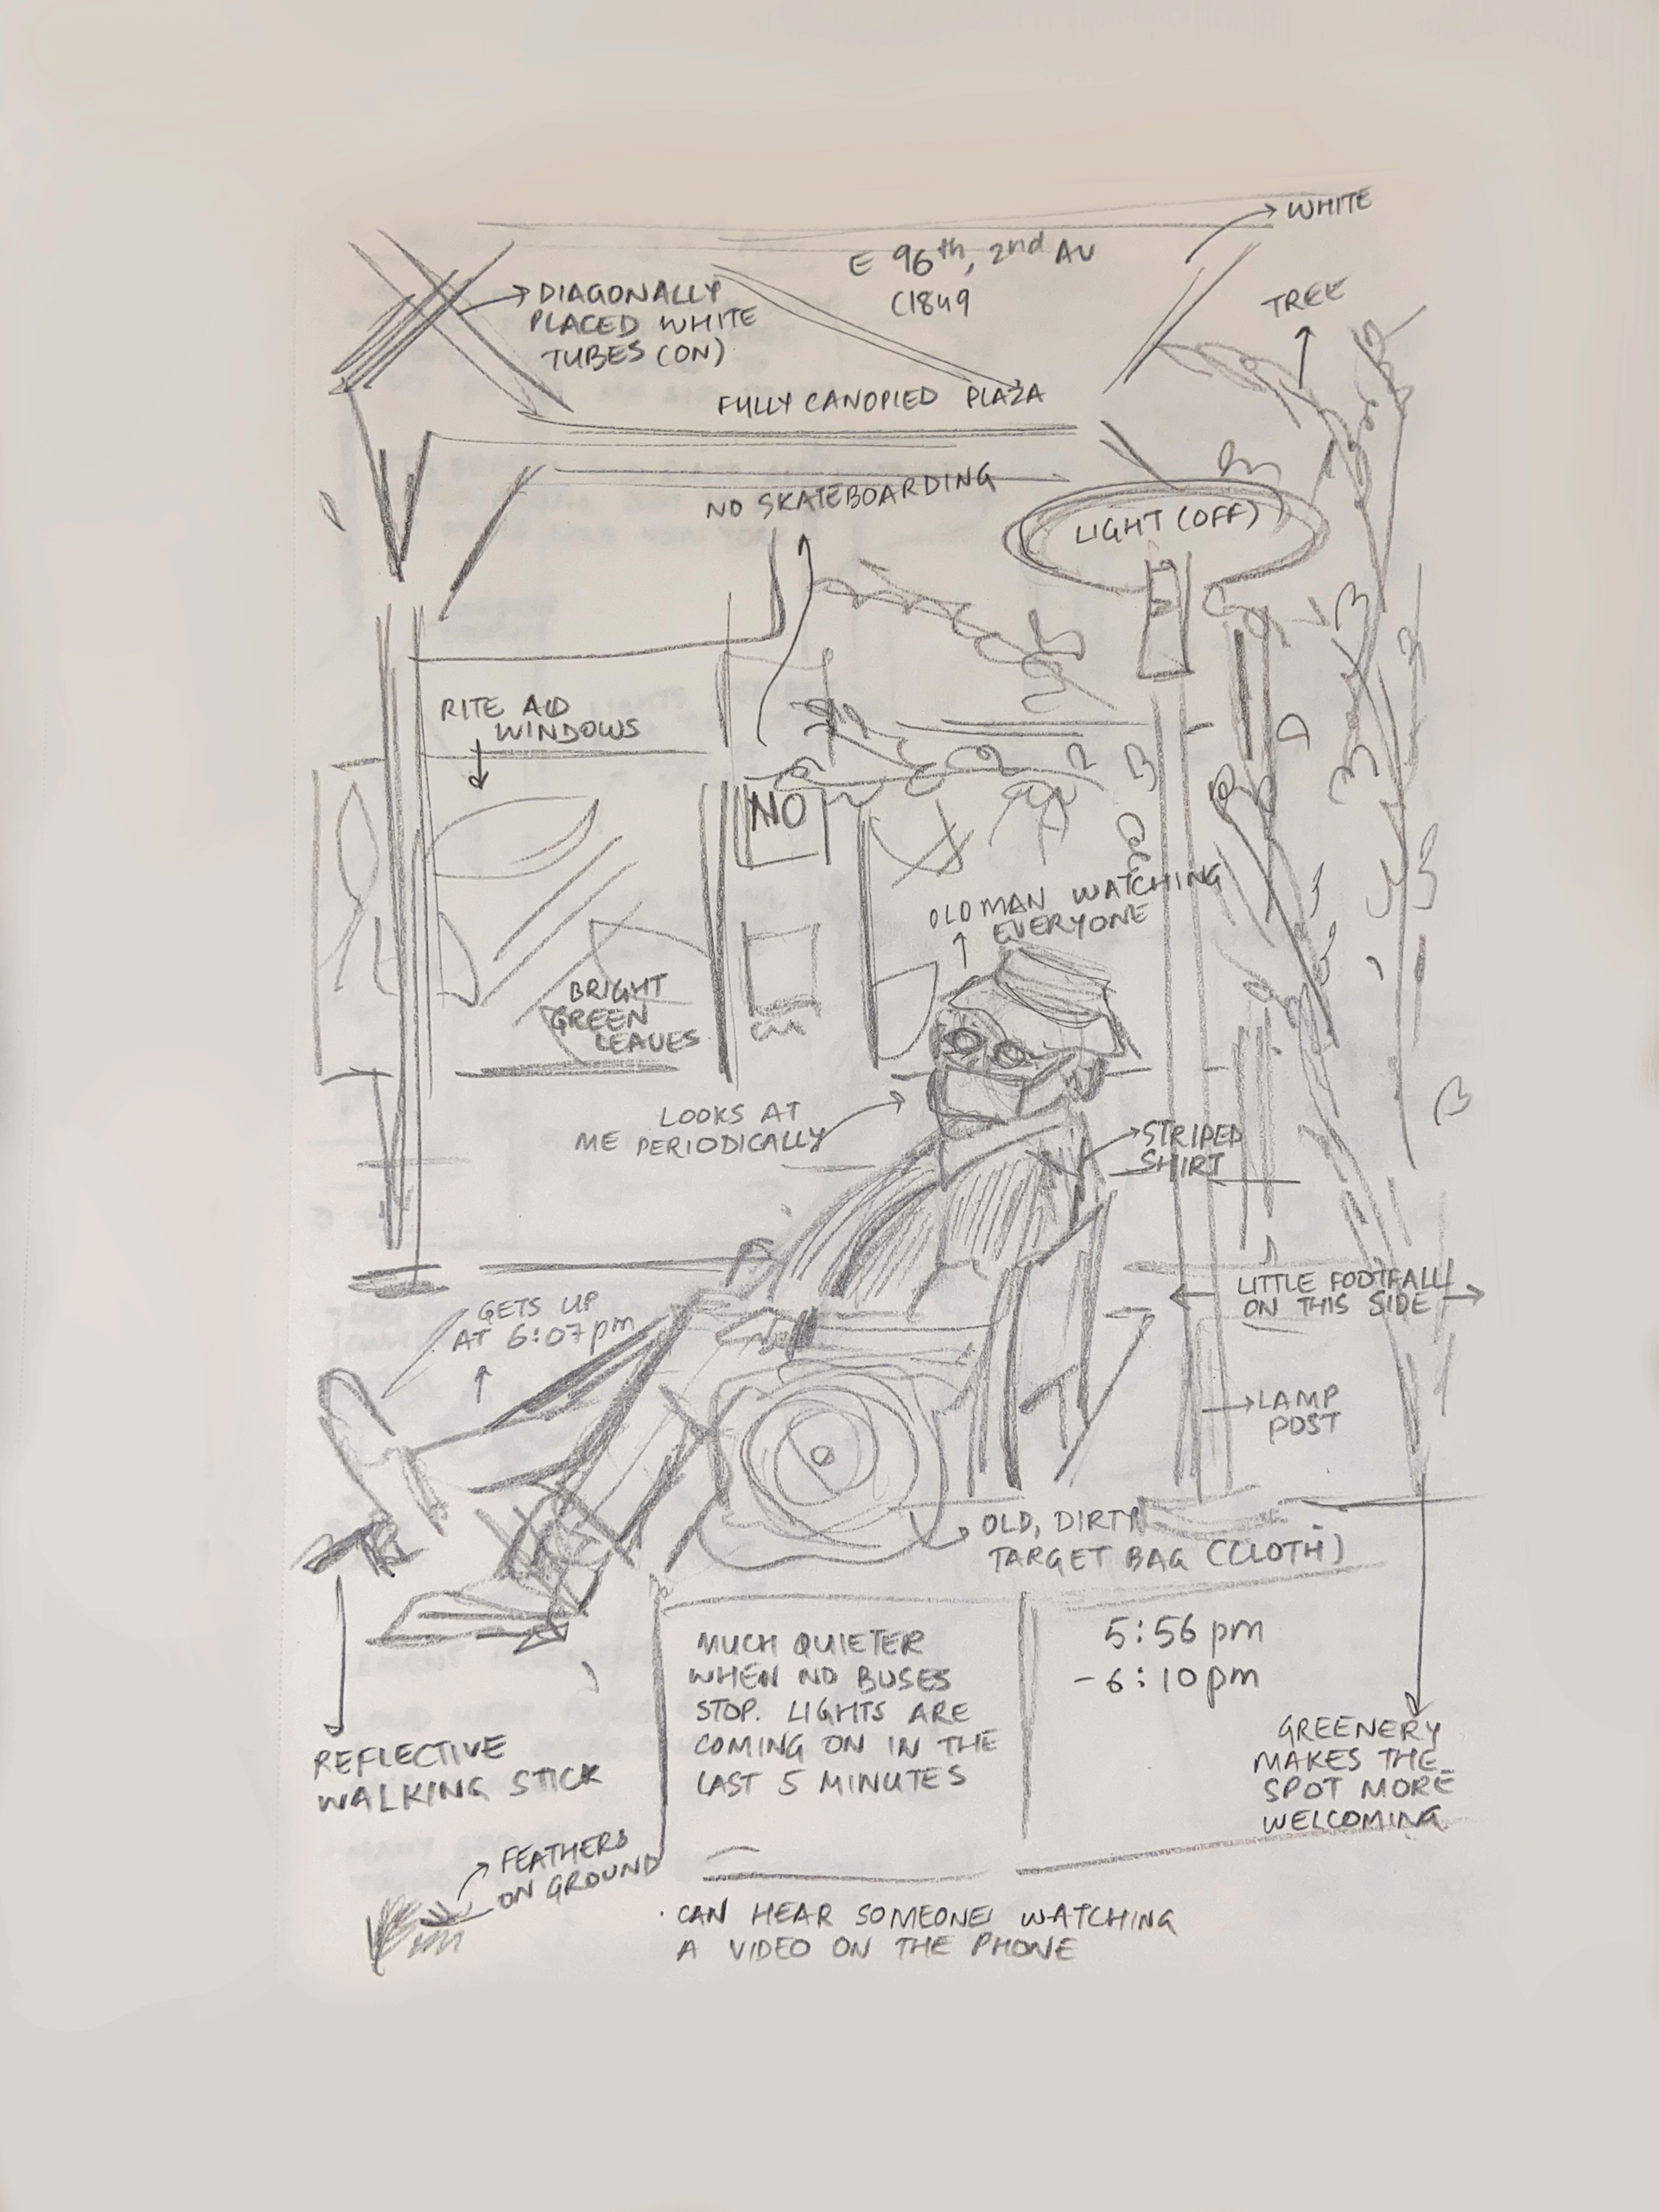 WHITE
E 96th, 2nd AV
C1849
DIAGONALLY
PLACED WHITE
TUBES (ON)
TREE
FULLY CANOPIED PLAZA
NO SKATEBOARDING
LIGHT (OFF)
RITE AID
WINDOWS
NO
OLD MAN WATCHING
EVERYONE
BRIGHT
GREEN
LEAVES
LOOKS AT
ME PERIODICALLY
STRIPED
SHIRT
GETS UP
AT 6:07pm
LITTLE FOOTFALL
ON THIS SIDE
LAMP
POST
OLD, DIRTY
TARGET BAG (CLOTH)
MUCH QUIETER
WHEN NO BUSES
STOP. LIGHTS ARE
COMING ON IN THE
LAST 5 MINUTES
5:56 pm
- 6:10pm
GREENERY
MAKES THE
SPOT MORE
WELCOMING
REFLECTIVE
WALKING STICK
FEATHERS
ON GROUND
· CAN HEAR SOMEONE WATCHING
A VIDEO ON THE PHONE